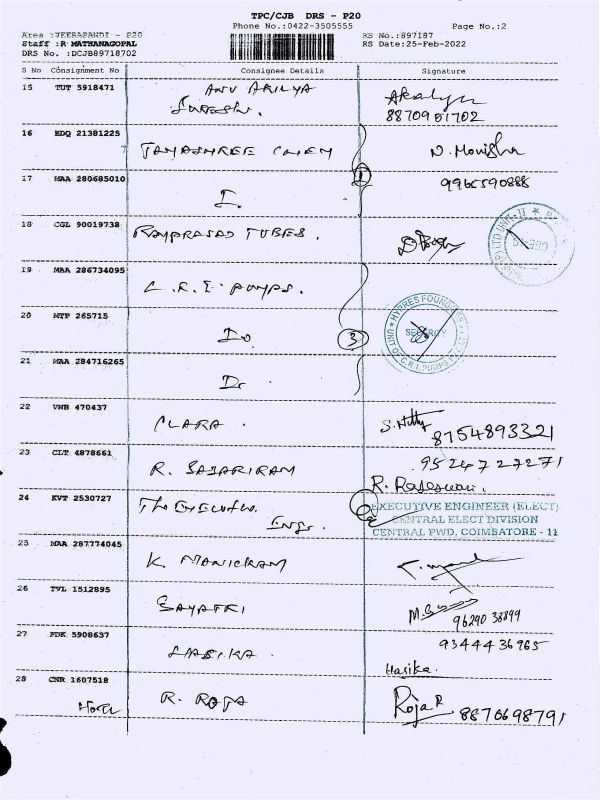 TPC/CJB DRS - P20
Phone No.:0422-3505555 Page No.:2
Area :VEERAPANDI - P20 RS No.:897187
Staff :R MATHANAGOPAL RS Date:25-Feb-2022
DRS No. :DCJB89718702
S No Consignment No Consignee Details Signature
15 TUT 5918471
Suresh.
8870951702
16 EDQ 21381225 JAYASHREE CHEM N. Monisha
17 MAA 280685010 9965590888
18 CGL 90019738 RAMPRASAD TUBES.
19 MAA 286734095 C.R.I. PUMPS.
20 MTP 265715 Do 3
HYPRES FOUNDRIES
SECURITY
UNIT OF C.R.I. PUMPS
21 MAA 284716265 Do
22 VNB 470437 CLARA. 8754893321
23 CLT 4878661 R. SABARIRAM 9524727271
R. Rajeswari.
24 KVT 2530727 The Executive Engr.
EXECUTIVE ENGINEER (ELECT)
CENTRAL ELECT DIVISION
CENTRAL PWD, COIMBATORE - 11
25 MAA 287774045 K. MANICKAM
26 TVL 1512895 GAYATRI
9629038899
27 PDK 5908637 9344436965
Harika.
28 CNR 1607518 R. ROJA Roja R 8870698791